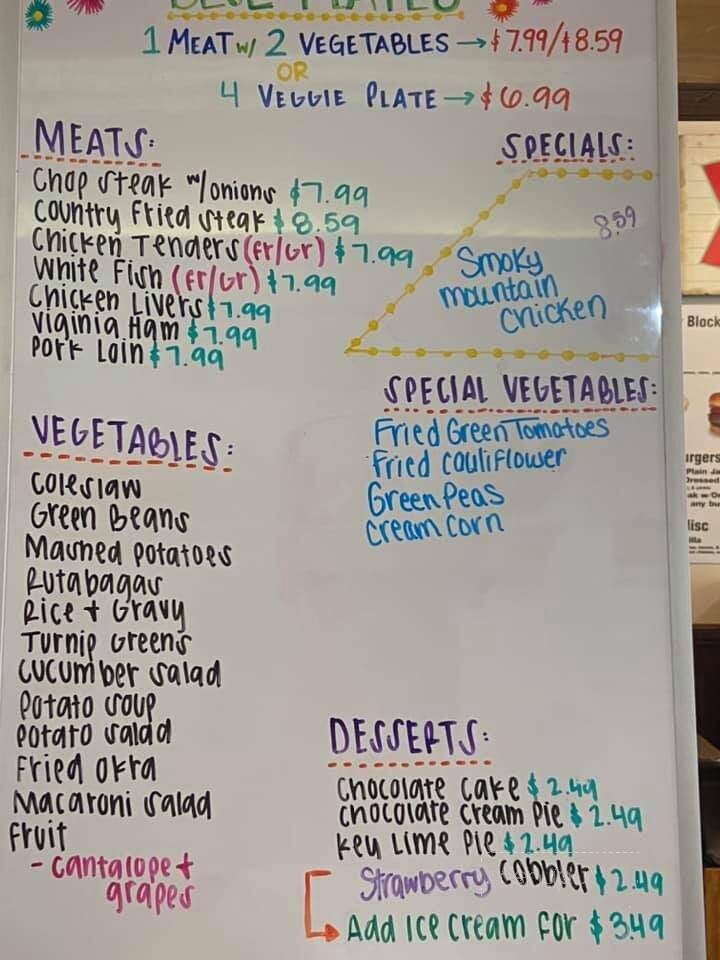 BLUE PLATES
1 MEAT w/ 2 VEGETABLES → $7.99/$8.59
OR
4 VEGGIE PLATE → $6.99
MEATS:
Chop Steak w/onions $7.99
Country Fried Steak $8.59
Chicken Tenders (Fr/Gr) $7.99
White Fish (Fr/Gr) $7.99
Chicken Livers $7.99
Viginia Ham $7.99
Pork Loin $7.99
SPECIALS:
8.59
Smoky
mountain
Chicken
SPECIAL VEGETABLES:
Fried Green Tomatoes
Fried Cauliflower
Green Peas
Cream Corn
VEGETABLES:
Coleslaw
Green Beans
Mashed Potatoes
Rutabagas
Rice + Gravy
Turnip Greens
Cucumber Salad
Potato Soup
Potato Salad
Fried Okra
Macaroni Salad
Fruit
- Cantalope +
grapes
DESSERTS:
Chocolate Cake $2.49
Chocolate Cream Pie $2.49
Key Lime Pie $2.49
Strawberry Cobbler $2.49
Add Ice Cream For $3.49
Block
urgers
Plain Ja
Dressed
any bu
lisc